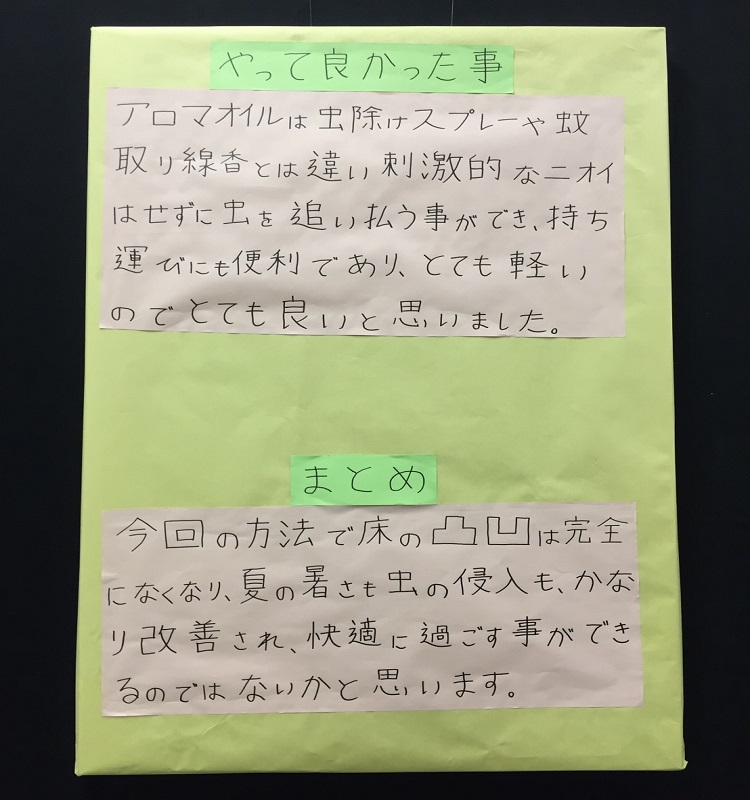 やって良かった事
アロマオイルは虫除けスプレーや蚊
取り線香とは違い刺激的なニオイ
はせずに虫を追い払う事ができ、持ち
運びにも便利であり、とても軽い
のでとても良いと思いました。
まとめ
今回の方法で床の凸凹は完全
になくなり、夏の暑さも虫の侵入も、かな
り改善され、快適に過ごす事ができ
るのではないかと思います。